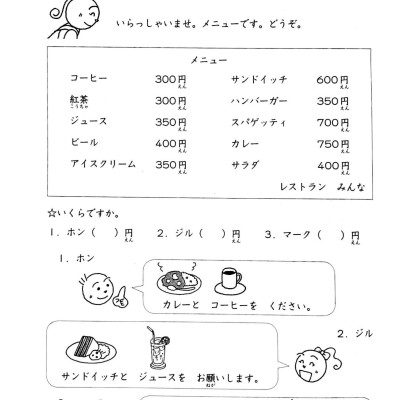 いらっしゃいませ。メニューです。どうぞ。
メニュー
コーヒー 300円 サンドイッチ 600円
えん えん
紅茶 300円 ハンバーガー 350円
こうちゃ えん えん
ジュース 350円 スパゲッティ 700円
えん えん
ビール 400円 カレー 750円
えん えん
アイスクリーム 350円 サラダ 400円
えん えん
レストラン みんな
☆いくらですか。
1. ホン( )円 2. ジル( )円 3. マーク( )円
えん えん えん
1. ホン
カレーと コーヒーを ください。
2. ジル
サンドイッチと ジュースを お願いします。
ねが